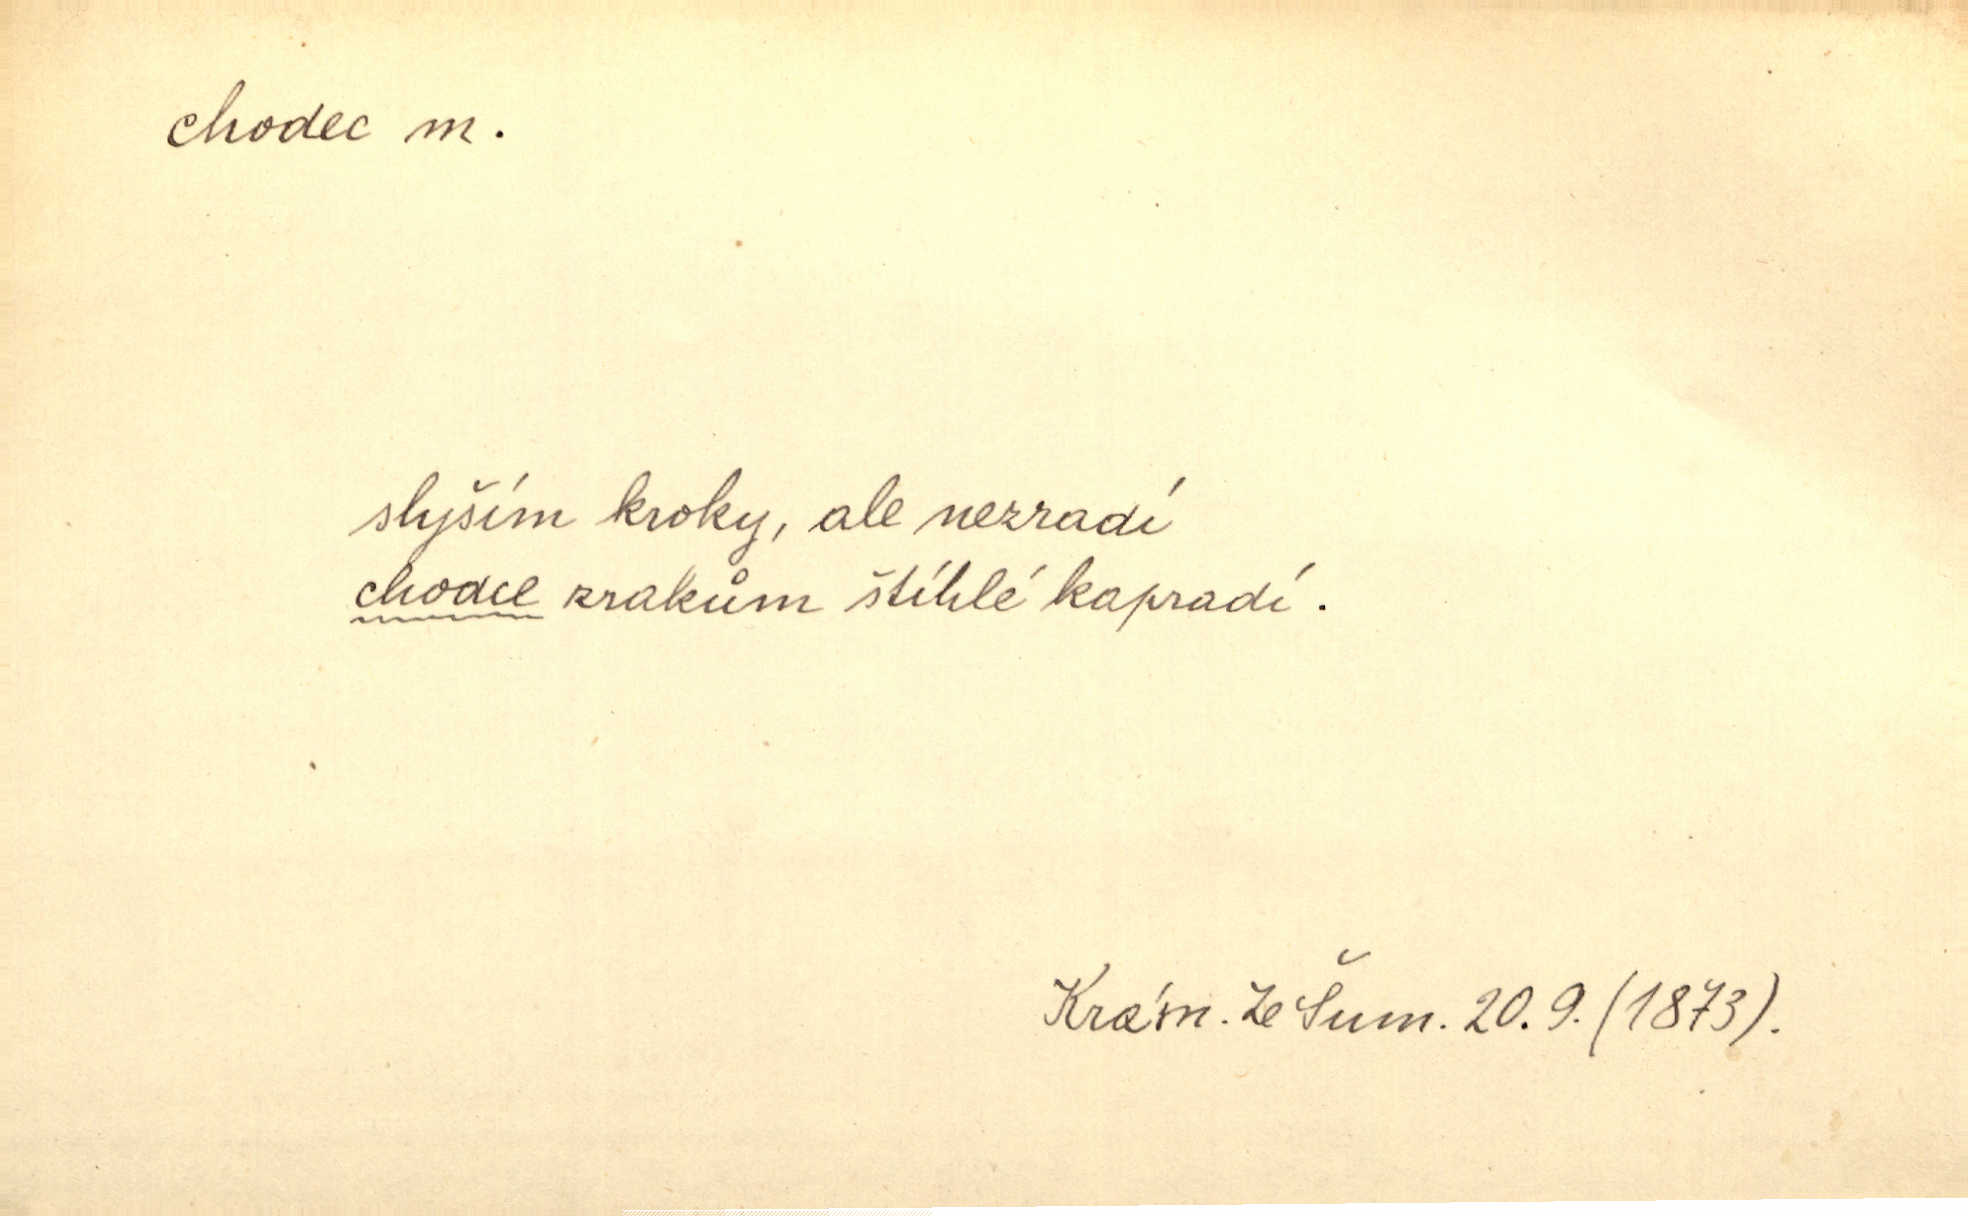 chodec m.
slyším kroky, ale nezradí
chodce zrakům štíhlé kapradí.
Krám. Ze Šum. 20. 9. (1873).